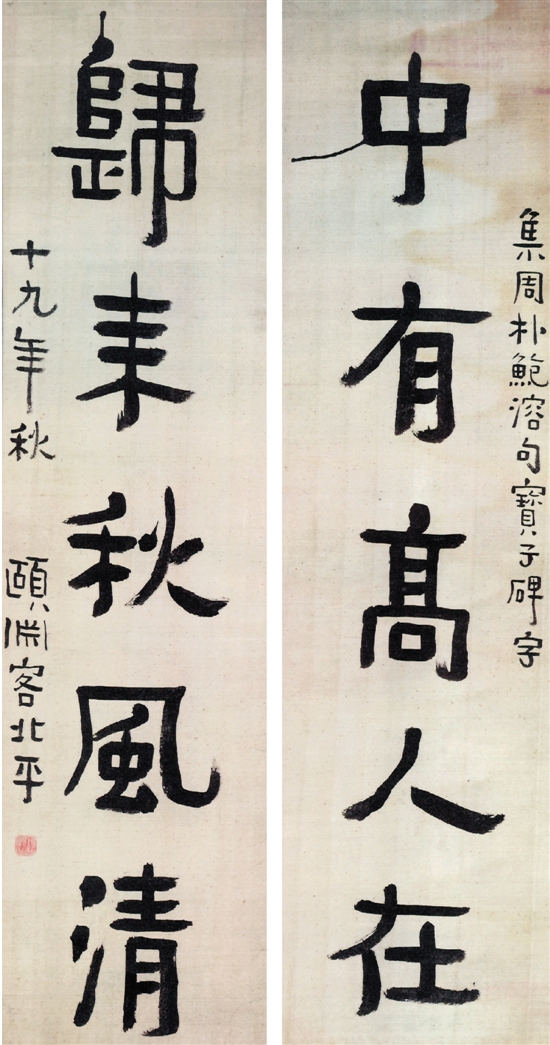 集周朴鮑溶句寶子碑字
中有高人在
歸来秋風清
十九年秋 頤淵客北平